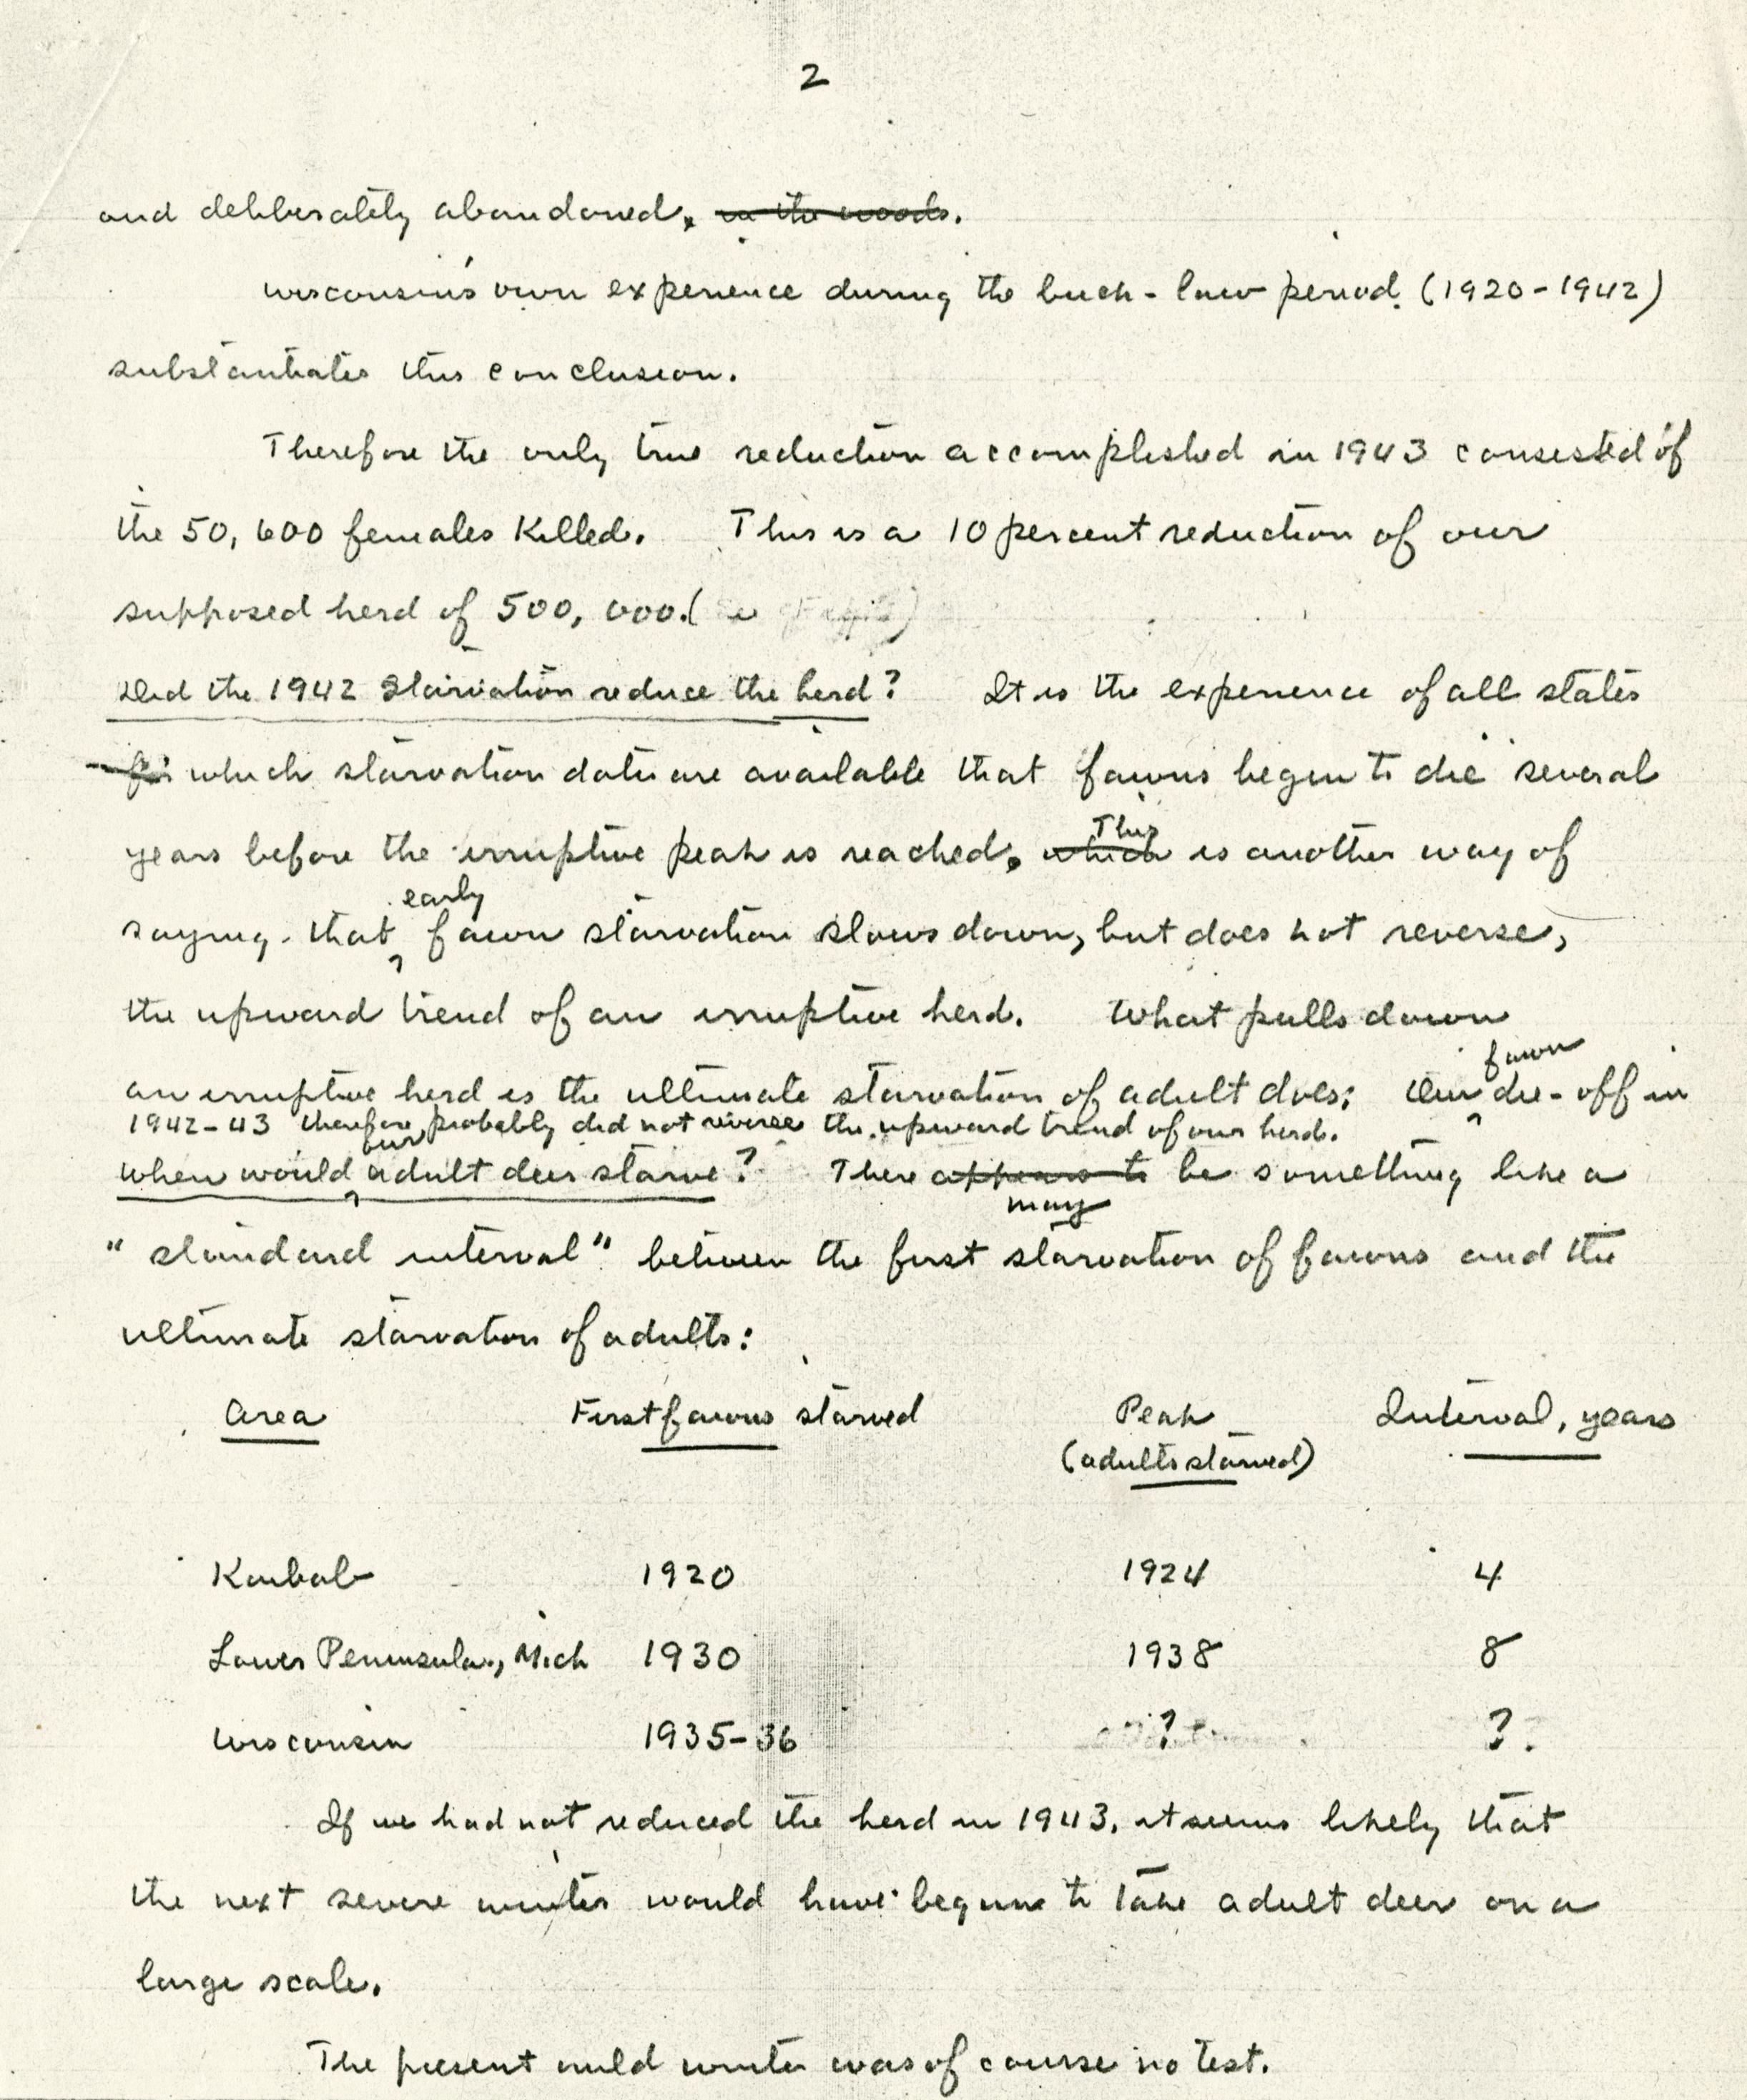 2
and deliberately abandoned. in the woods.
Wisconsin's own experience during the buck-law period (1920-1942)
substantiates this conclusion.
Therefore the only true reduction accomplished in 1943 consisted of
the 50,600 females killed. This is a 10 percent reduction of our
supposed herd of 500,000. (
Did the 1942 starvation reduce the herd? It is the experience of all states
for which starvation data are available that fawns begin to die several
years before the irruptive peak is reached. which This is another way of
saying that early fawn starvation slows down, but does not reverse,
the upward trend of an irruptive herd. What pulls down
an irruptive herd is the ultimate starvation of adult does; Our fawn die-off in
1942-43 therefore probably did not reverse the upward trend of our herd.
When would our adult deer starve? There appears to may be something like a
"standard interval" between the first starvation of fawns and the
ultimate starvation of adults:
Area First fawns starved Peak Interval, years
(adults starved)
Kaibab 1920 1924 4
Lower Peninsula, Mich 1930 1938 8
Wisconsin 1935-36 ? ?
If we had not reduced the herd in 1943, it seems likely that
the next severe winter would have begun to take adult deer on a
large scale.
The present mild winter was of course no test.